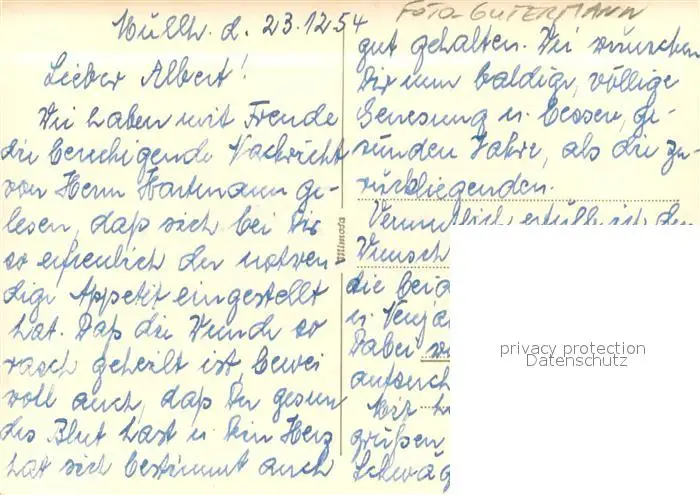 Müllh. d. 23.12.54
Lieber Albert!
Wir haben mit Freude
die beruhigende Nachricht
von Herrn Hartmann ge-
lesen, daß sich bei Dir
so erfreulich der notwen
dige Appetit eingestellt
hat. Daß die Wunde so
rasch geheilt ist, bewei
voll auch, daß Du gesun
des Blut hast u. Dein Herz
hat sich bestimmt auch
Mimosa
FOTO-GUTERMANN
gut gehalten. Wir wünschen
Dir nun baldige, völlige
Genesung u. bessere, ge-
sunden Jahre, als die zu-
rückliegenden.
Vermutlich erfülle ich den
Wunsch
die beid
u. Neuja
Dabei
aufsuch
Mit
grüßen
Schwäg
privacy protection
Datenschutz